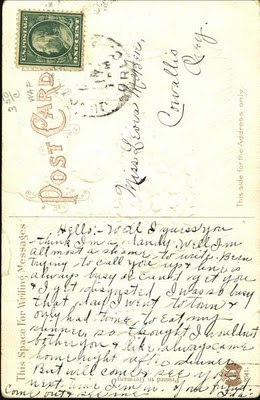 U.S. POSTAGE
ONE CENT
POST CARD
Miss
Corvallis
Org.
This side for the Address only.
This Space for Writing Messages
Hello:- Well I guess you
think I'm a dandy. Well I'm
almost a shame to write. Been
trying to call you up & line is
always busy or can't get you
& I get disgusted. I was so busy
that day I went to town &
only had time to eat my
dinner, so thought I wouldn't
bother you & like always came
home right after dinner.
But will come & see you
next time I'm in. Your friend.
Come out & see me. Ida.